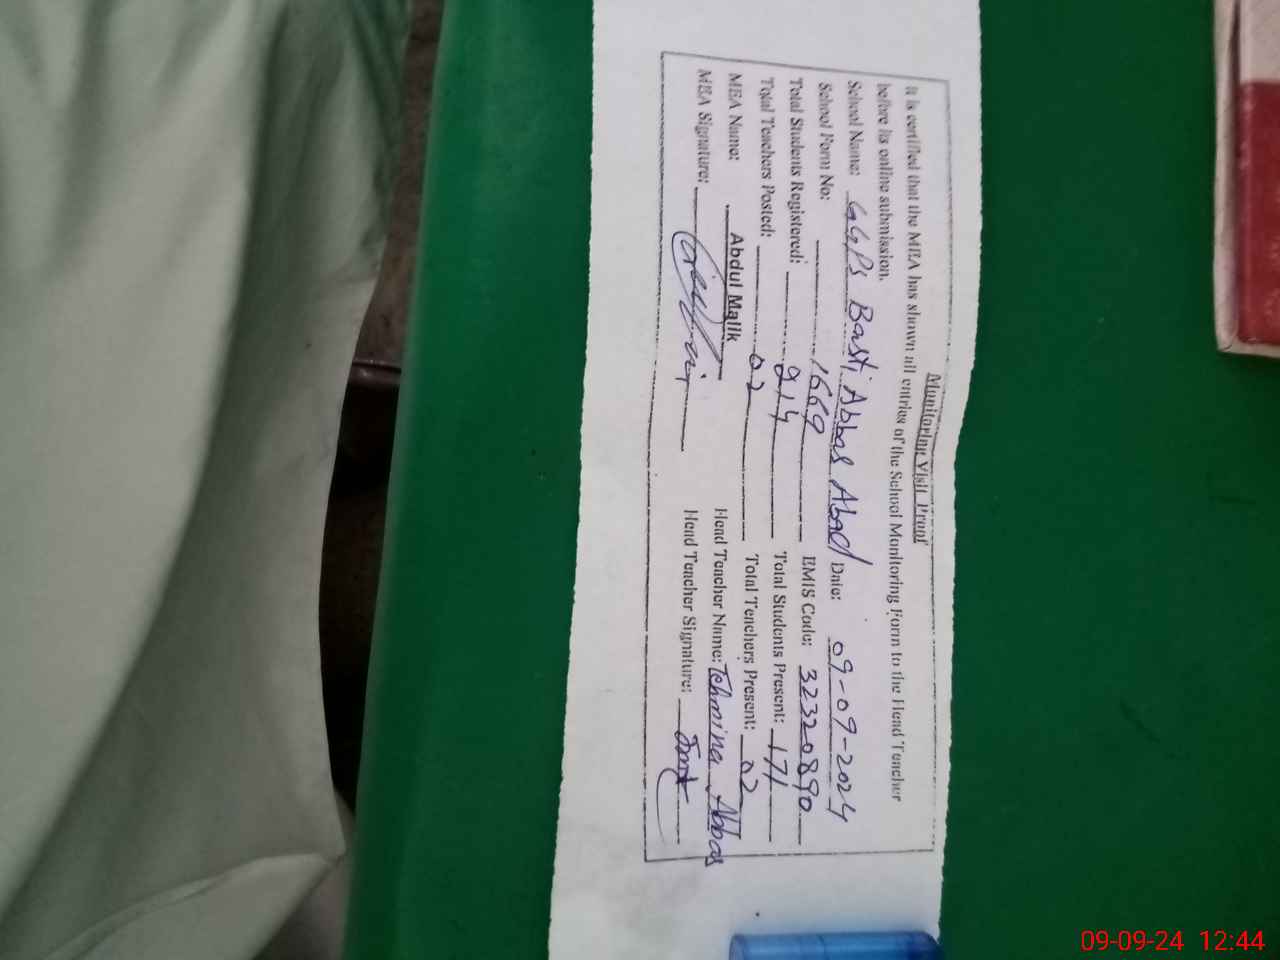 Monitoring Visit Proof
It is certified that the MEA has shown all entries of the School Monitoring Form to the Head Teacher
before its online submission.
School Name: GGPS Basti Abbas Abad Date: 09-09-2024
School Form No: 1669 EMIS Code: 32320890
Total Students Registered: 214 Total Students Present: 171
Total Teachers Posted: 02 Total Teachers Present: 02
MEA Name: Abdul Malik Head Teacher Name: Tehmina Abbas
MEA Signature: Head Teacher Signature:
09-09-24 12:44